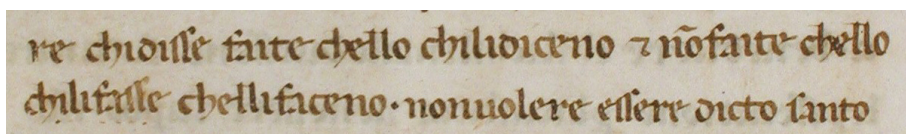 re chidisse faite chello chilidiceno ⁊ nõ faite chello
chilifasse chellifaceno · non uolere essere dicto santo